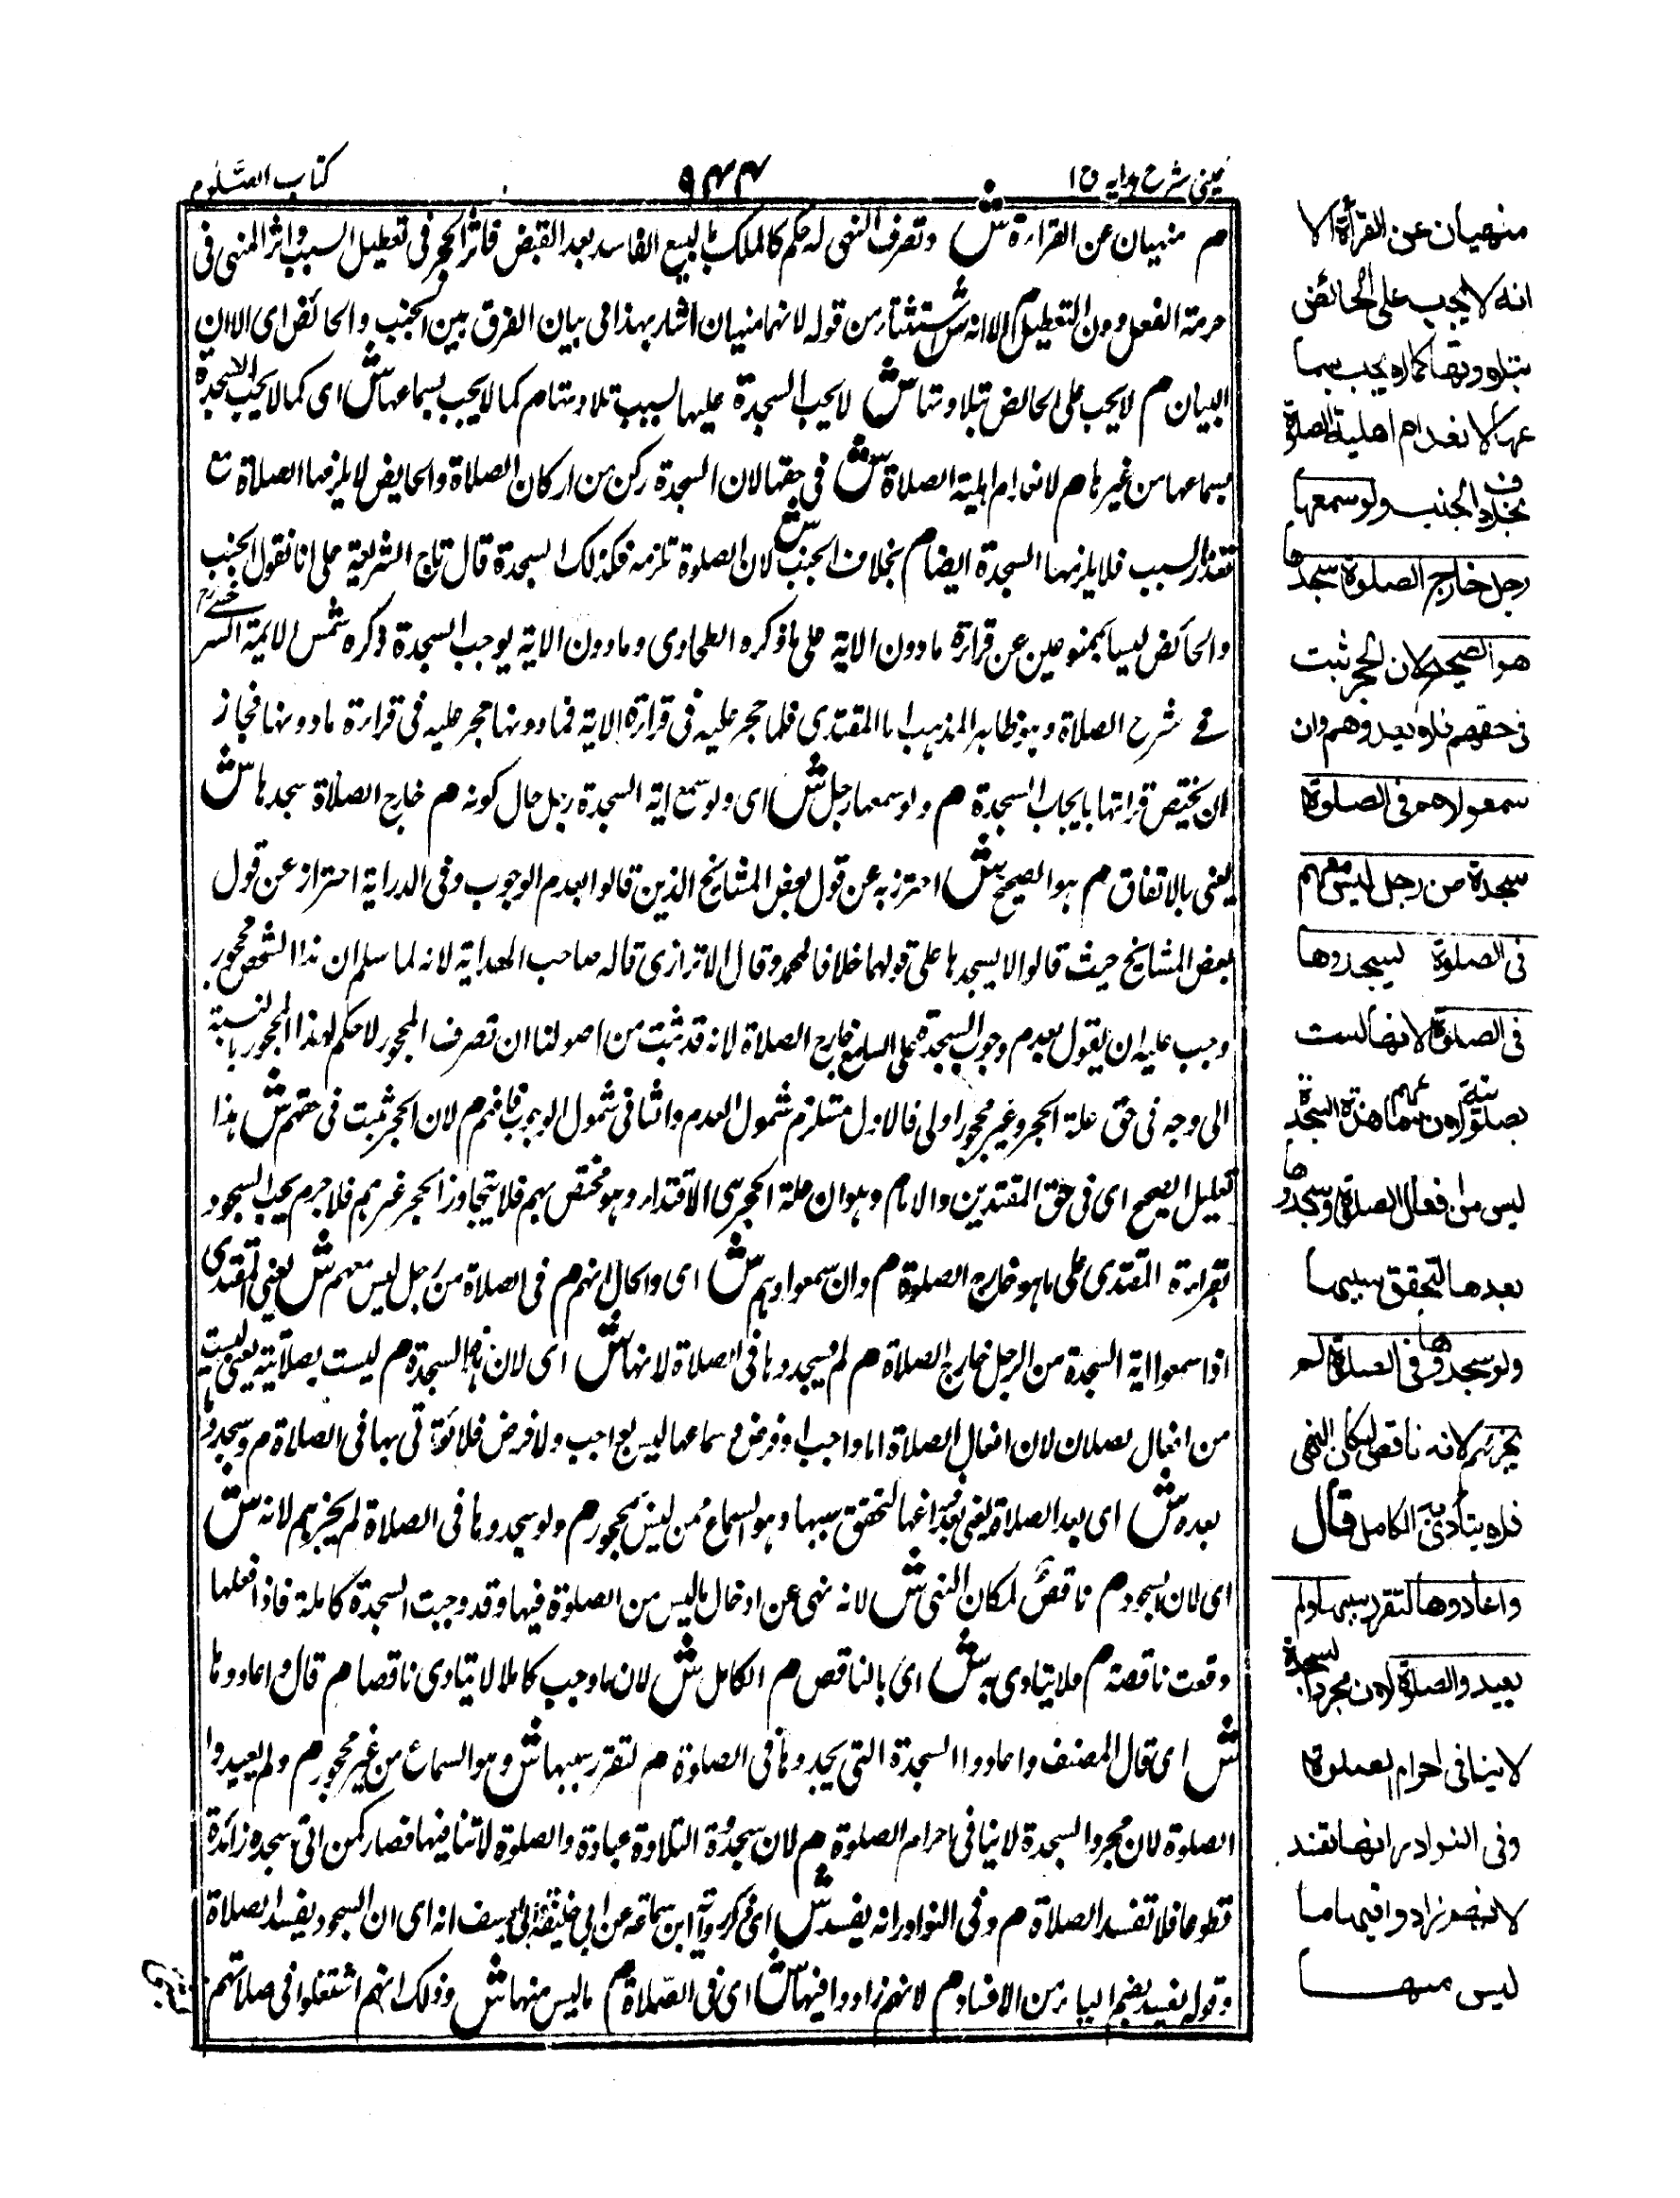 عینی شرح ہدایہ ج ۱
۹۴۴
کتاب الصلوٰۃ
م منہیان عن القراءۃ ش وتصرف المنہی لہ حکم کالملک بالبیع الفاسد بعد القبض فاثر الحجر فی تعطیل السبب واثر المنہی فی
حرمۃ الفعل دون التعطیل م الا انہ ش استثناء من قولہ لانہما منہیان اشار بہذا فی بیان الفرق بین الجنب والحائض ای الا ان
البیان م لا یجب علی الحائض بتلاوتہا ش لا یجب السجدۃ علیہا بسبب تلاوتہا م کما لا یجب بسماعہا ش ای کما لا یجب السجدۃ
بسماعہا من غیرہا م لانعدام اہلیۃ الصلاۃ ش فی حقہا لان السجدۃ رکن من ارکان الصلاۃ والحایض لا یلزمہا الصلاۃ مع
تقرر السبب فلا یلزمہا السجدۃ ایضا م بخلاف الجنب ش لان الصلوۃ تلزمہ فکذلک السجدۃ قال تاج الشریعۃ علی انا نقول الجنب
والحائض لیسا بممنوعین عن قراءۃ مادون الایۃ علی ما ذکرہ الطحاوی ومادون الایۃ یوجب السجدۃ ذکرہ شمس الایمۃ السرخسی رح
فی شرح الصلاۃ وہو ظاہر المذہب اما المقتدی فلما حجر علیہ فی قراءۃ الایۃ فما دونہا حجر علیہ فی قراءۃ مادونہا فجاز
ان یختص قراءتہا بایجاب السجدۃ م ولو سمعہا رجل ش ای ولو سمع ایۃ السجدۃ رجل حال کونہ م خارج الصلاۃ سجدہا ش
یعنی بالاتفاق م ہو الصحیح ش احترز بہ عن قول بعض المشایخ الذین قالوا بعدم الوجوب وفی الدرایۃ احتراز عن قول
بعض المشایخ حیث قالوا لا یسجدہا علی قولہما خلافا لمحمد وقال الاترازی قالہ صاحب الہدایۃ لانہ لما سلم ان ہذا الشخص محجور
وجب علیہ ان یقول بعدم وجوب السجدۃ علی السامع خارج الصلاۃ لانہ قد ثبت من اصولنا ان تصرف المحجور لا حکم لہ ہذا المحجور بالنسبۃ
الی وجہ فی حق علۃ الحجر وغیر محجور اولی فالاول مستلزم شمول العدم والثانی شمول الوجوب فافہم م لان الحجر ثبت فی حقہم ش ہذا
تعلیل الصحیح ای فی حق المقتدین والامام وہو ان علۃ الحجر ہی الاقتداء وہو مختص بہم فلا یتجاوز الحجر غیرہم فلا جرم یجب السجود
بقراءۃ المقتدی علی ما ہو خارج الصلوۃ م وان سمعوا وہم ش ای والحال انہم م فی الصلاۃ من رجل لیس معہم ش یعنی المقتدی
اذا سمعوا ایۃ السجدۃ من الرجل خارج الصلاۃ م لم یسجدوہا فی الصلاۃ لانہا ش ای لان ہذہ السجدۃ م لیست بصلاتیۃ یعنی لیست
من افعال صلاتہ لان افعال الصلاۃ اما واجب او فرض وسماعہا لیس بواجب ولا فرض فلا یؤتی بہا فی الصلاۃ م وسجدوہا
بعدہ ش ای بعد الصلاۃ یعنی بعد فراغہا لتحقق سببہا وہو السماع ممن لیس بمحجور م ولو سجدوہا فی الصلاۃ لم یجزہم لانہ ش
ای لان السجود م ناقص لمکان النہی ش لانہ نہی عن ادخال ما لیس من الصلوۃ فیہا وقد وجبت السجدۃ کاملۃ فاذا فعلہا
وقعت ناقصۃ م فلا یتادی بہ ش ای بالناقص م الکامل ش لان ما وجب کاملا لا یتادی ناقصا م قال واعادوہا
ش ای قال المصنف واعادوا السجدۃ التی سجدوہا فی الصلوۃ م لتقرر سببہا ش وہو السماع من غیر محجور م ولم یعیدوا
الصلوۃ لان مجرد السجدۃ لا ینافی احرام الصلوۃ م لان سجدۃ التلاوۃ عبادۃ والصلوۃ لا تنافیہا فصار کمن اتی سجدہ زائدۃ
تطوعا فلا تفسد الصلاۃ م وفی النوادر انہ یفسد ش ای ذکر روایۃ ابن سماعہ عن ابی حنیفۃ وابی یوسف انہ ای ان السجود یفسد الصلاۃ
وقولہ یفسد بضم الیاء من الافساد م لانہم زادوا فیہا ش ای فی الصلاۃ م ما لیس منہا ش وذلک انہم اشتغلوا فی صلاتہم
منهيان عن القرأة الا
انه لا يجب على الحائض
بتلاوتها كما لا يجب بسما
عها لانعدام اهلية الصلوة
بخلاف الجنب ولو سمعها
رجل خارج الصلوة سجدها
هو الصحيح لان الحجر ثبت
فى حقهم فلا يعدوهم وان
سمعوا وهم فى الصلوة
سجدة من رجل ليس معهم
فى الصلوة لم يسجدوها
فى الصلوة لانها ليست
بصلوتية لان سماعهم هذه السجدة
ليس من افعال الصلوة وسجدوها
بعدها لتحقق سببها
ولو سجدوها فى الصلوة لم
يجزهم لانه ناقص لمكان النهى
فلا يتأدى به الكامل قال
واعادوها لتقرر سببها ولم
يعيدوا الصلوة لان مجرد السجدة
لا ينافى احرام الصلوة
وفى النوادر انها تفسد
لانهم زادوا فيها ما
ليس منها